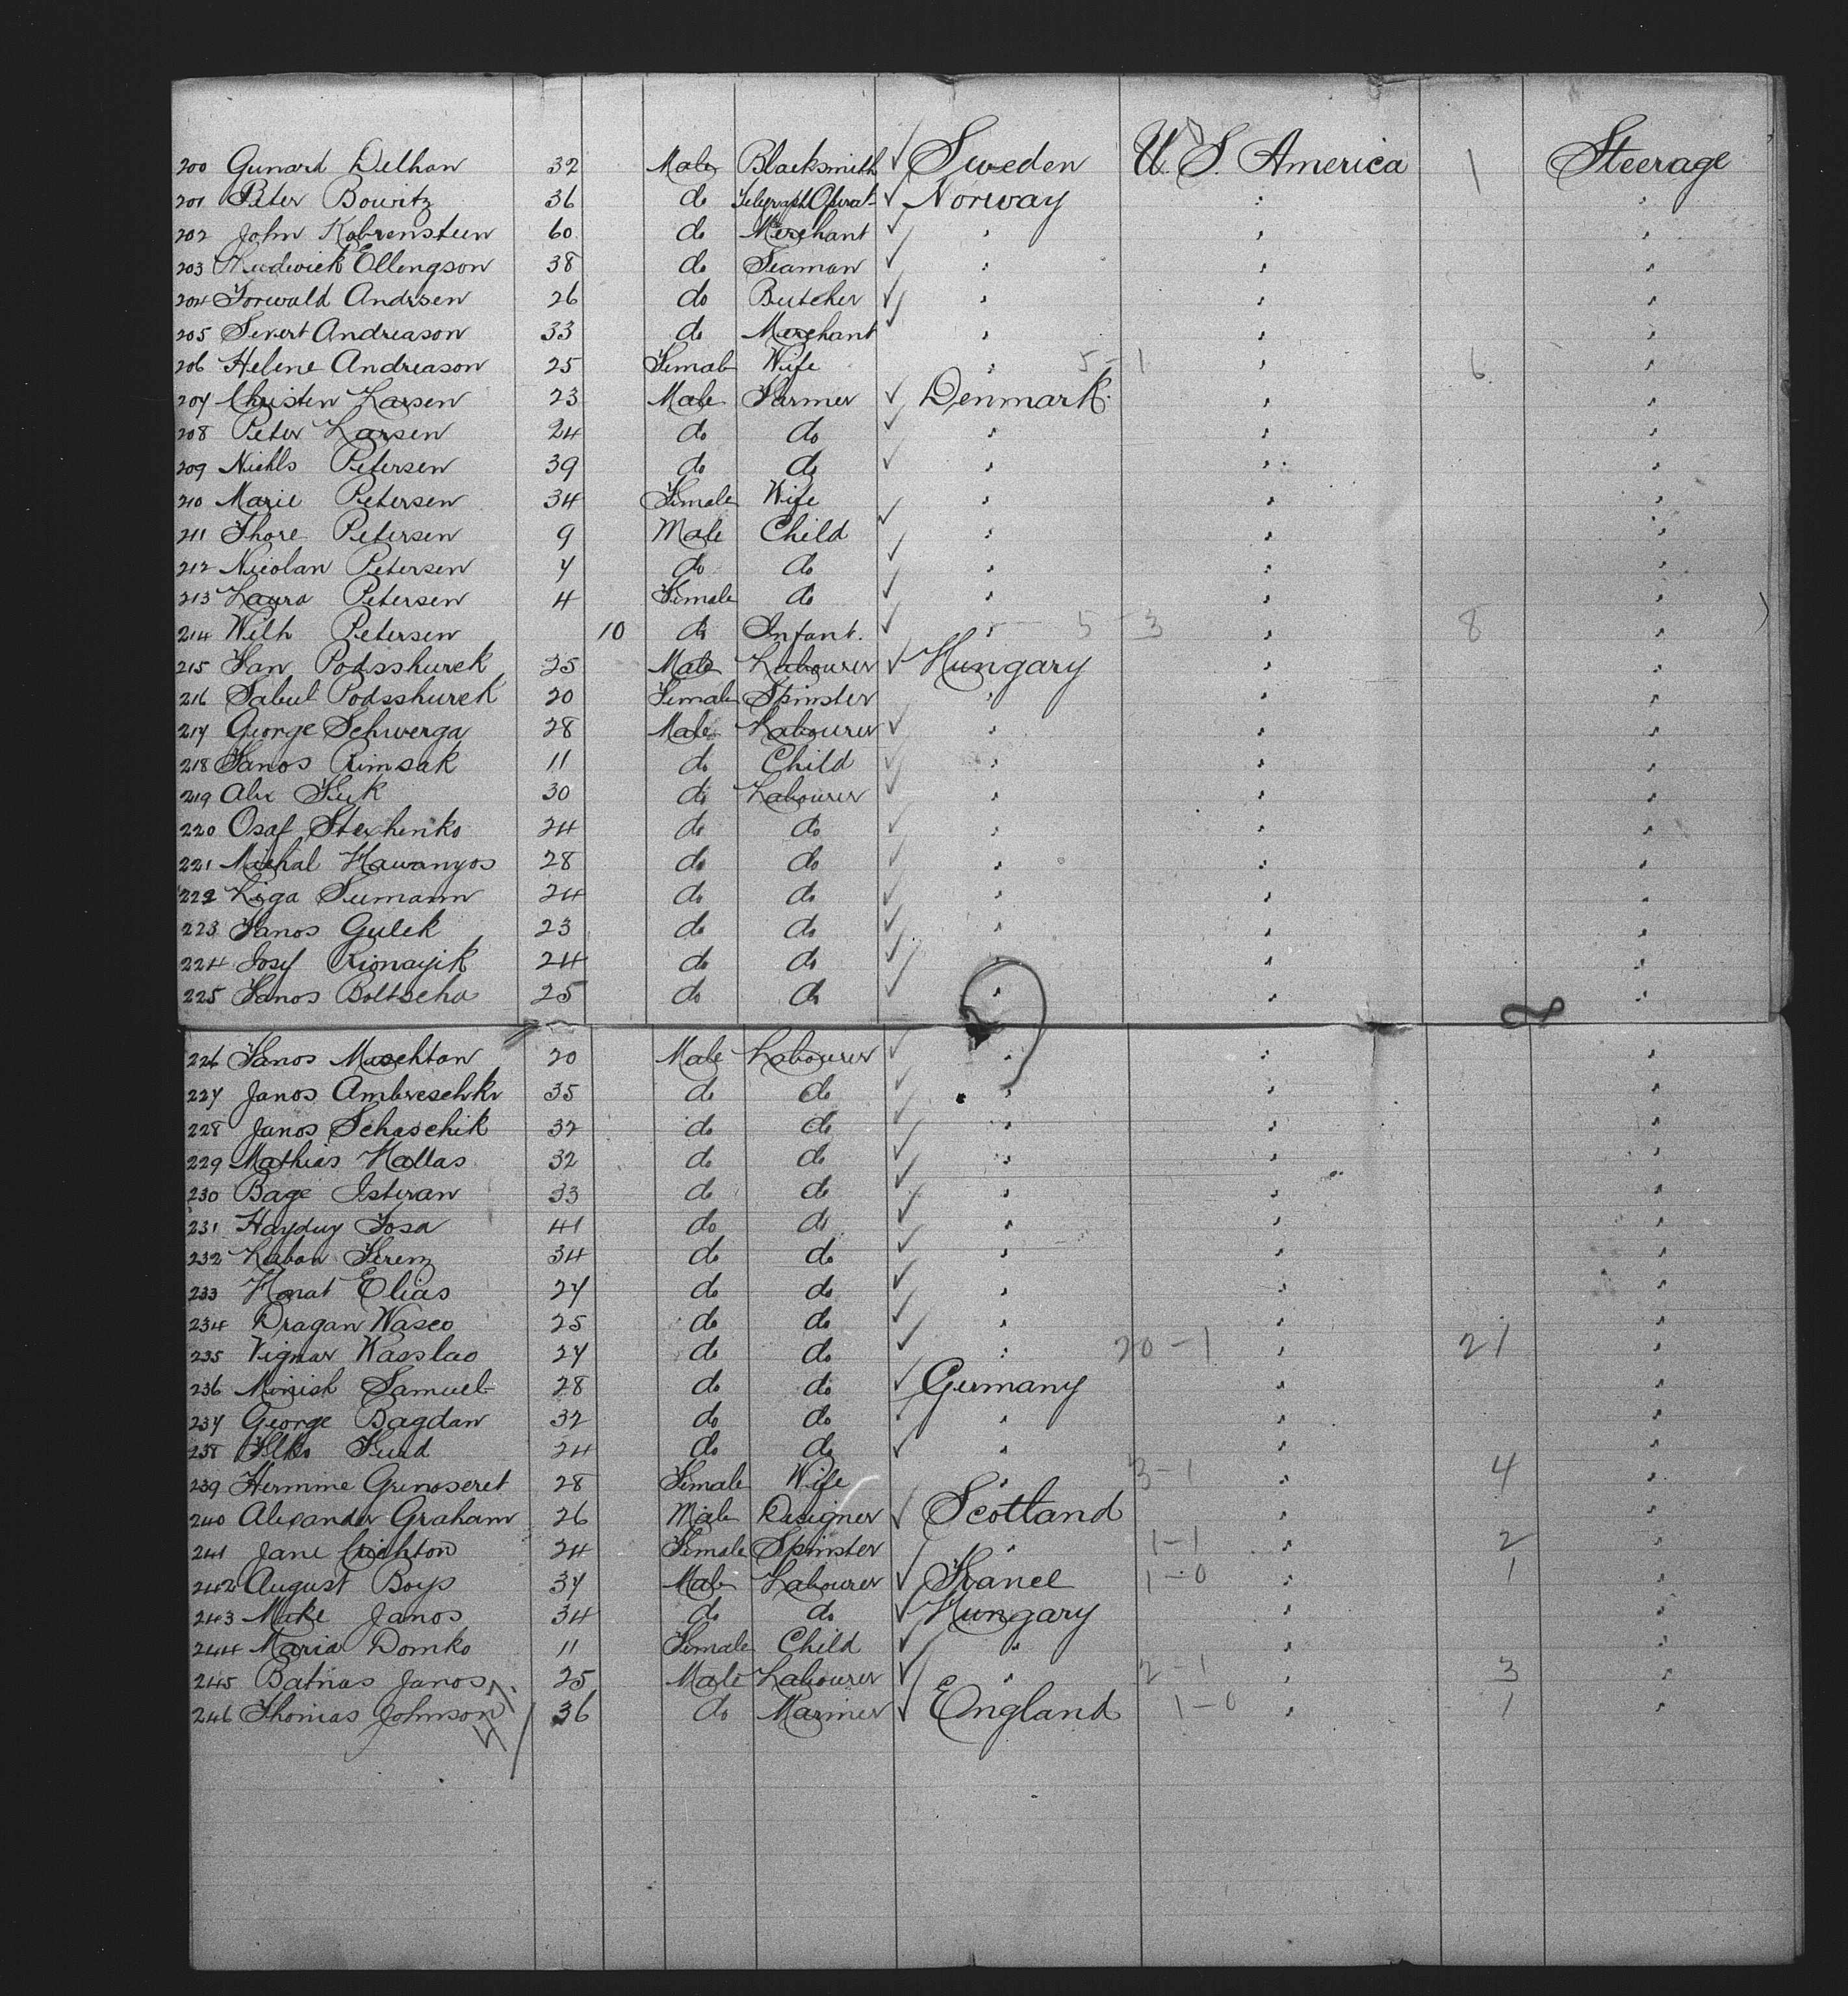 200 Gunard Delhan 32 Male Blacksmith ✓ Sweden U. S. America 1 Steerage
201 Peter Bowitz 36 do Telegraph Operat ✓ Norway " "
202 John Kobrensteen 60 do Merchant ✓ " " "
203 Ellengson 38 do Seaman ✓ " " "
204 Torwald Andrsen 26 do Butcher ✓ " " "
205 Sivert Andreason 33 do Merchant ✓ " " "
206 Helene Andreason 25 Female Wife " 5-1 " 6 "
207 Christen Larsen 23 Male Farmer ✓ Denmark " "
208 Peter Larsen 24 do do ✓ " " "
209 Niehls Petersen 39 do do ✓ " " "
210 Marie Petersen 34 Female Wife ✓ " " "
211 Thore Petersen 9 Male Child ✓ " " "
212 Nicolan Petersen 7 do do ✓ " " "
213 Laura Petersen 4 Female do ✓ " " "
214 Wilh Petersen 10 do Infant. ✓ " 5-3 " 8 "
215 Jan Podsshurek 25 Male Labourer ✓ Hungary " "
216 Sabul Podsshurek 20 Female Spinster " " "
217 George Schwerga 28 Male Labourer ✓ " " "
218 Janos Rimsak 11 do Child ✓ " " "
219 Alex 30 do Labourer ✓ " " "
220 Osaf Stexhenko 24 do do ✓ " " "
221 Michal Hawanyos 28 do do ✓ " " "
222 Liga Sumann 24 do do ✓ " " "
223 Janos Gulek 23 do do ✓ " " "
224 Josef Rionayik 24 do do ✓ " " "
225 Janos Boltscha 25 do do ✓ " " "
226 Janos Maschton 20 Male Labourer ✓ " " "
227 Janos Ambreschkr 35 do do ✓ " " "
228 Janos Schaschik 32 do do ✓ " " "
229 Mathias Hallas 32 do do ✓ " " "
230 Bage Isteran 33 do do ✓ " " "
231 Hayduy Josa 41 do do ✓ " " "
232 Labon Ferenz 34 do do ✓ " " "
233 Honat Elias 27 do do ✓ " " "
234 Dragan Wasco 25 do do ✓ " " "
235 Vignar Wasslao 27 do do ✓ " 20-1 " 21 "
236 Monish Samuel 28 do do ✓ Germany " "
237 George Bagdan 32 do do ✓ " " "
238 24 do do ✓ " " "
239 Hermine Grinoseret 28 Female Wife " 3-1 " 4 "
240 Alexander Graham 26 Male Designer ✓ Scotland " "
241 Jane Crichton 24 Female Spinster ✓ " 1-1 " 2 "
242 August Boys 37 Male Labourer ✓ France 1-0 " 1 "
243 Make Janos 34 do do ✓ Hungary " "
244 Maria Domko 11 Female Child ✓ " " "
245 Batnas Janos 25 Male Labourer ✓ " 2-1 " 3 "
246 Thomas Johnson 47 36 do Mariner ✓ England 1-0 " 1 "